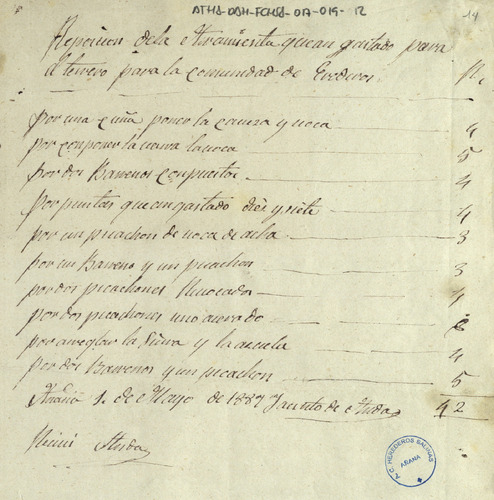 ATHA-DAH-FCHSA-017-019-12
14
Reposicion de la eRamienta que an gastado para
el terrero para la comunidad de Erederos
R.s
por una Cuña poner la caveza y voca 4
por conponer la voca 5
por dos Barrenos conpuestos 4
por puntas que an gastado diez y siete 4
por un picachon de voca de acha 3
por un Barreno y un picachon 3
por dos picachones 4
por dos picachones uno acerado 6
por arreglar la Sierra y la azuela 4
por dos Barrenos y un picachon 5
Añana 1. de Mayo de 1887 Jacinto de Atuda 42
Recivi Atuda
T. C. HEREDEROS SALINAS
AÑANA